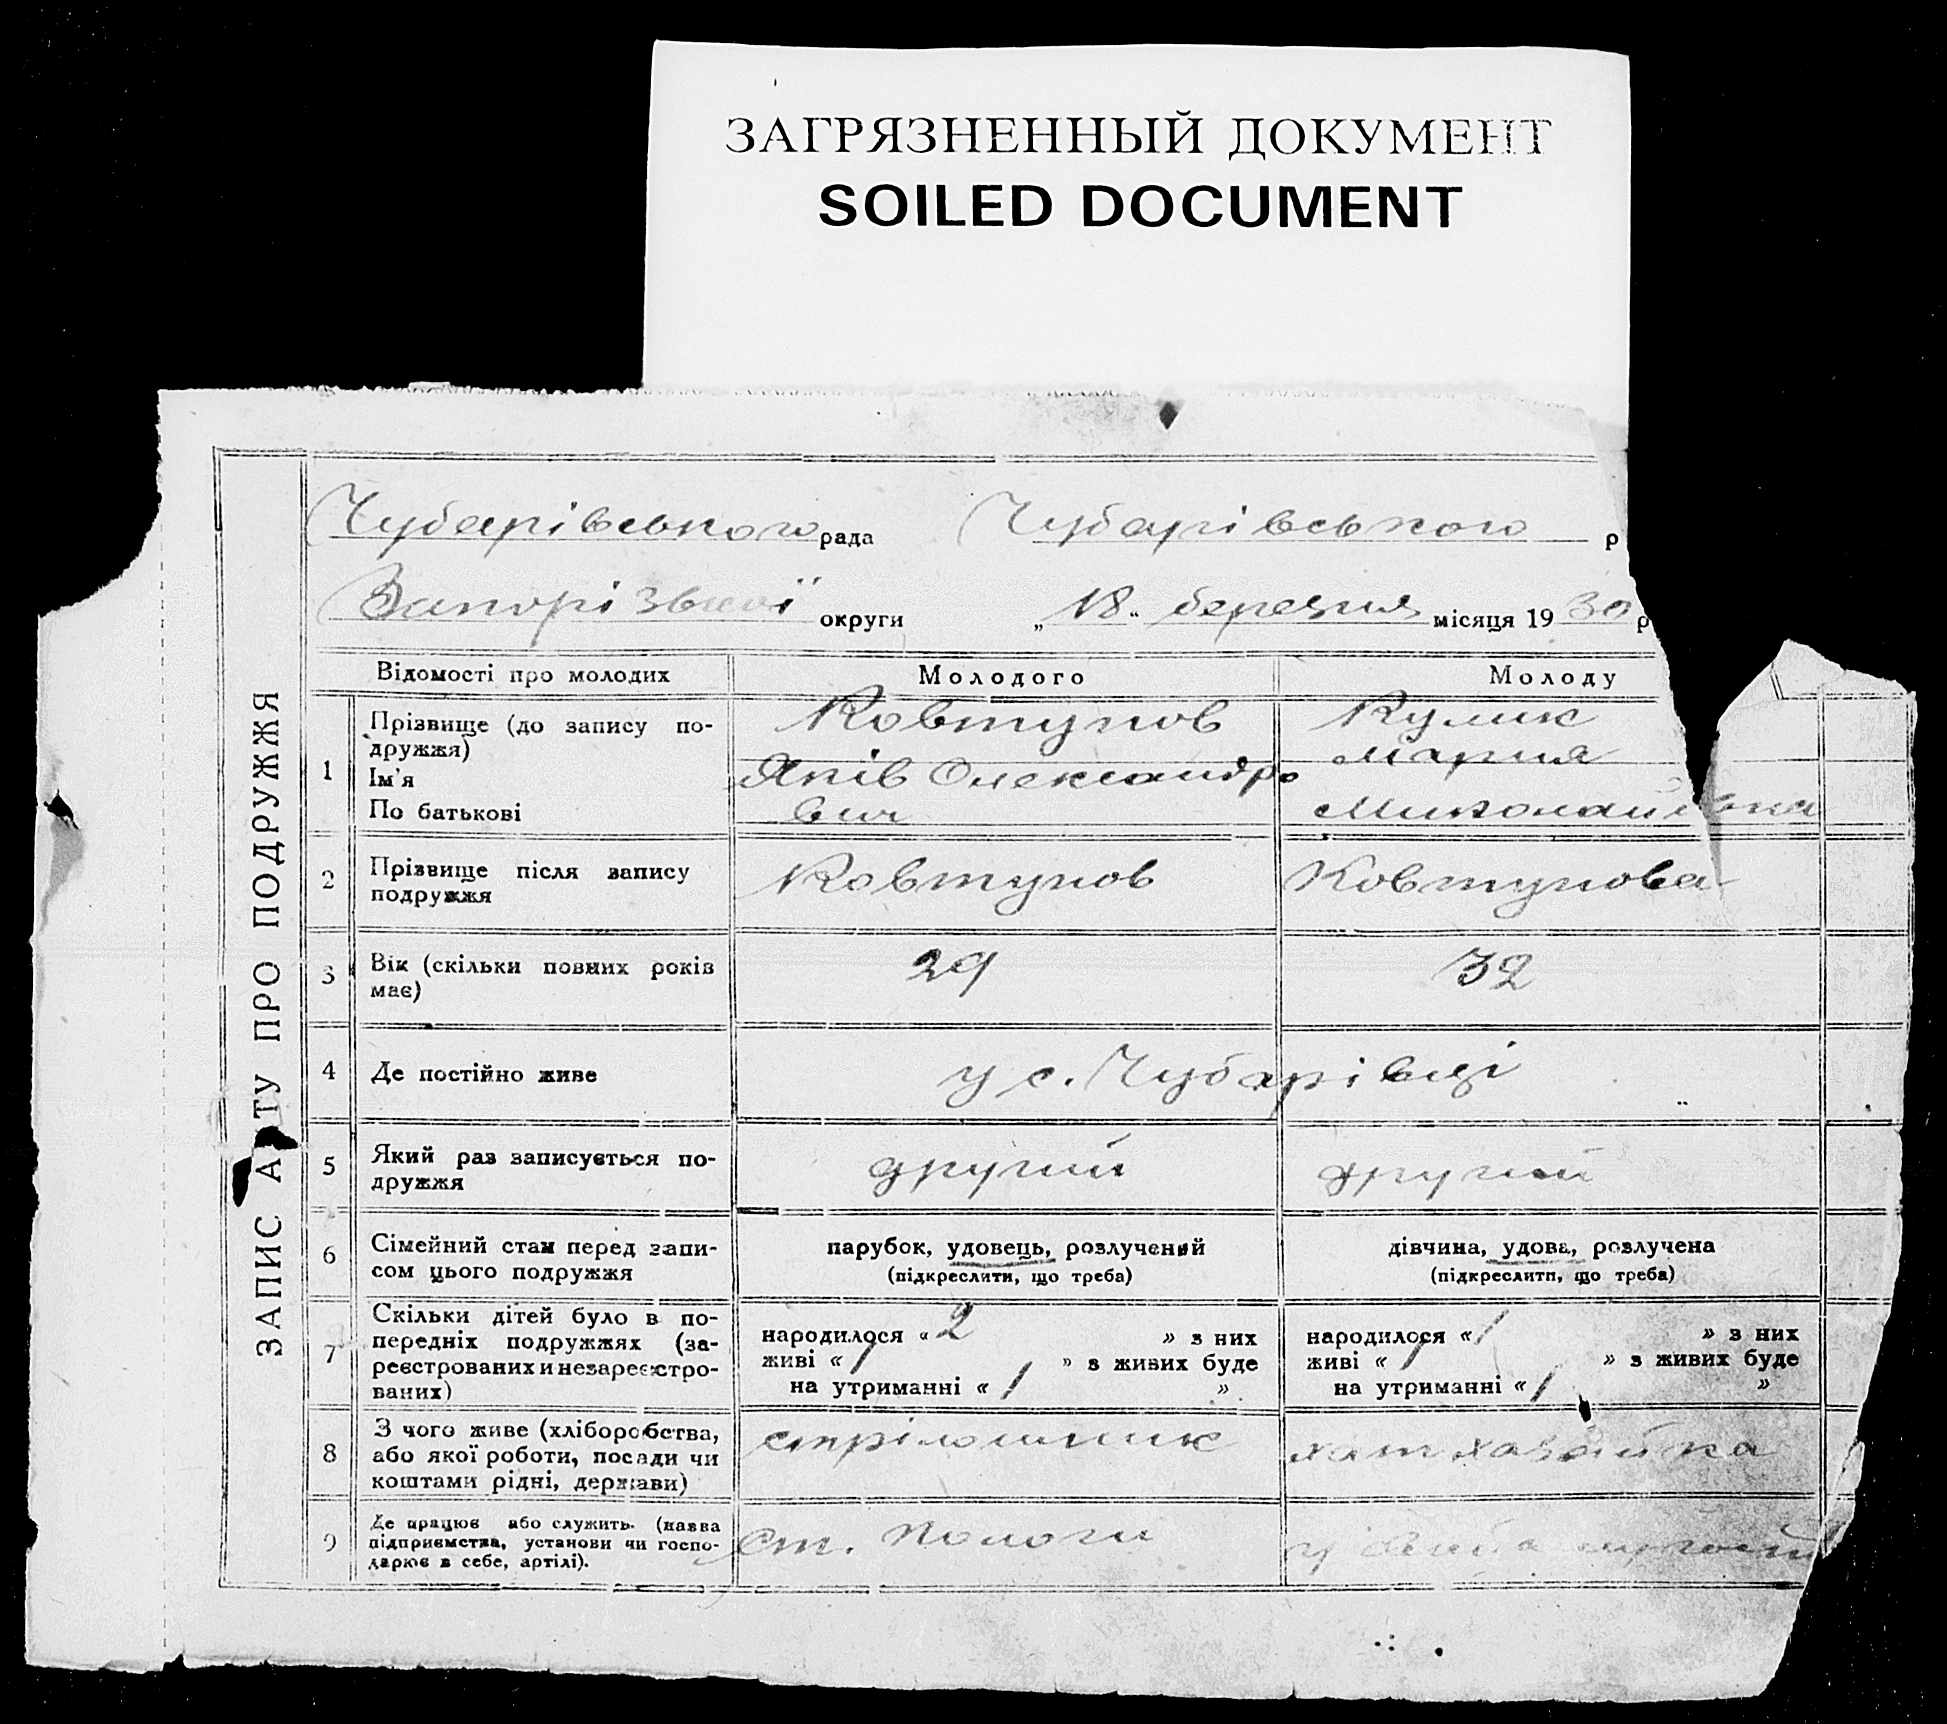 ЗАГРЯЗНЕННЫЙ ДОКУМЕНТ
SOILED DOCUMENT
ЗАПИС А ТУ ПРО ПОДРУЖЖЯ
Чубарівського рада Чубарівського р
Запорізької округи „18“ березня місяця 1930 р
Відомості про молодих Молодого Молоду
1 Прізвище (до запису по-
дружжя)
Ім'я
По батькові
Ковтунов
Яків Олександро
вич
Кулик
Мария
Миколаївна
2 Прізвище після запису
подружжя
Ковтунов Ковтунова
3 Вік (скільки повних років
має)
29 32
4 Де постійно живе у с. Чубарівці
5 Який раз записується по-
дружжя
другий другий
6 Сімейний стан перед запи-
сом цього подружжя
парубок, удовець, розлучений
(підкреслити, що треба)
дівчина, удова, розлучена
(підкреслити, що треба)
7 Скільки дітей було в по-
передніх подружжях (за-
реєстрованих и незареєстро-
ваних)
народилося « 2 » з них
живі « 1 » з живих буде
на утриманні « 1 »
народилося « 1 » з них
живі « 1 » з живих буде
на утриманні « 1 »
8 З чого живе (хліборобства,
або якої роботи, посади чи
коштами рідні, держави)
стрілошник
хатхазайка
9 Де працює або служить (назва
підприємства, установи чи госпо-
дарює в себе, артілі).
Ст. Пологи
у